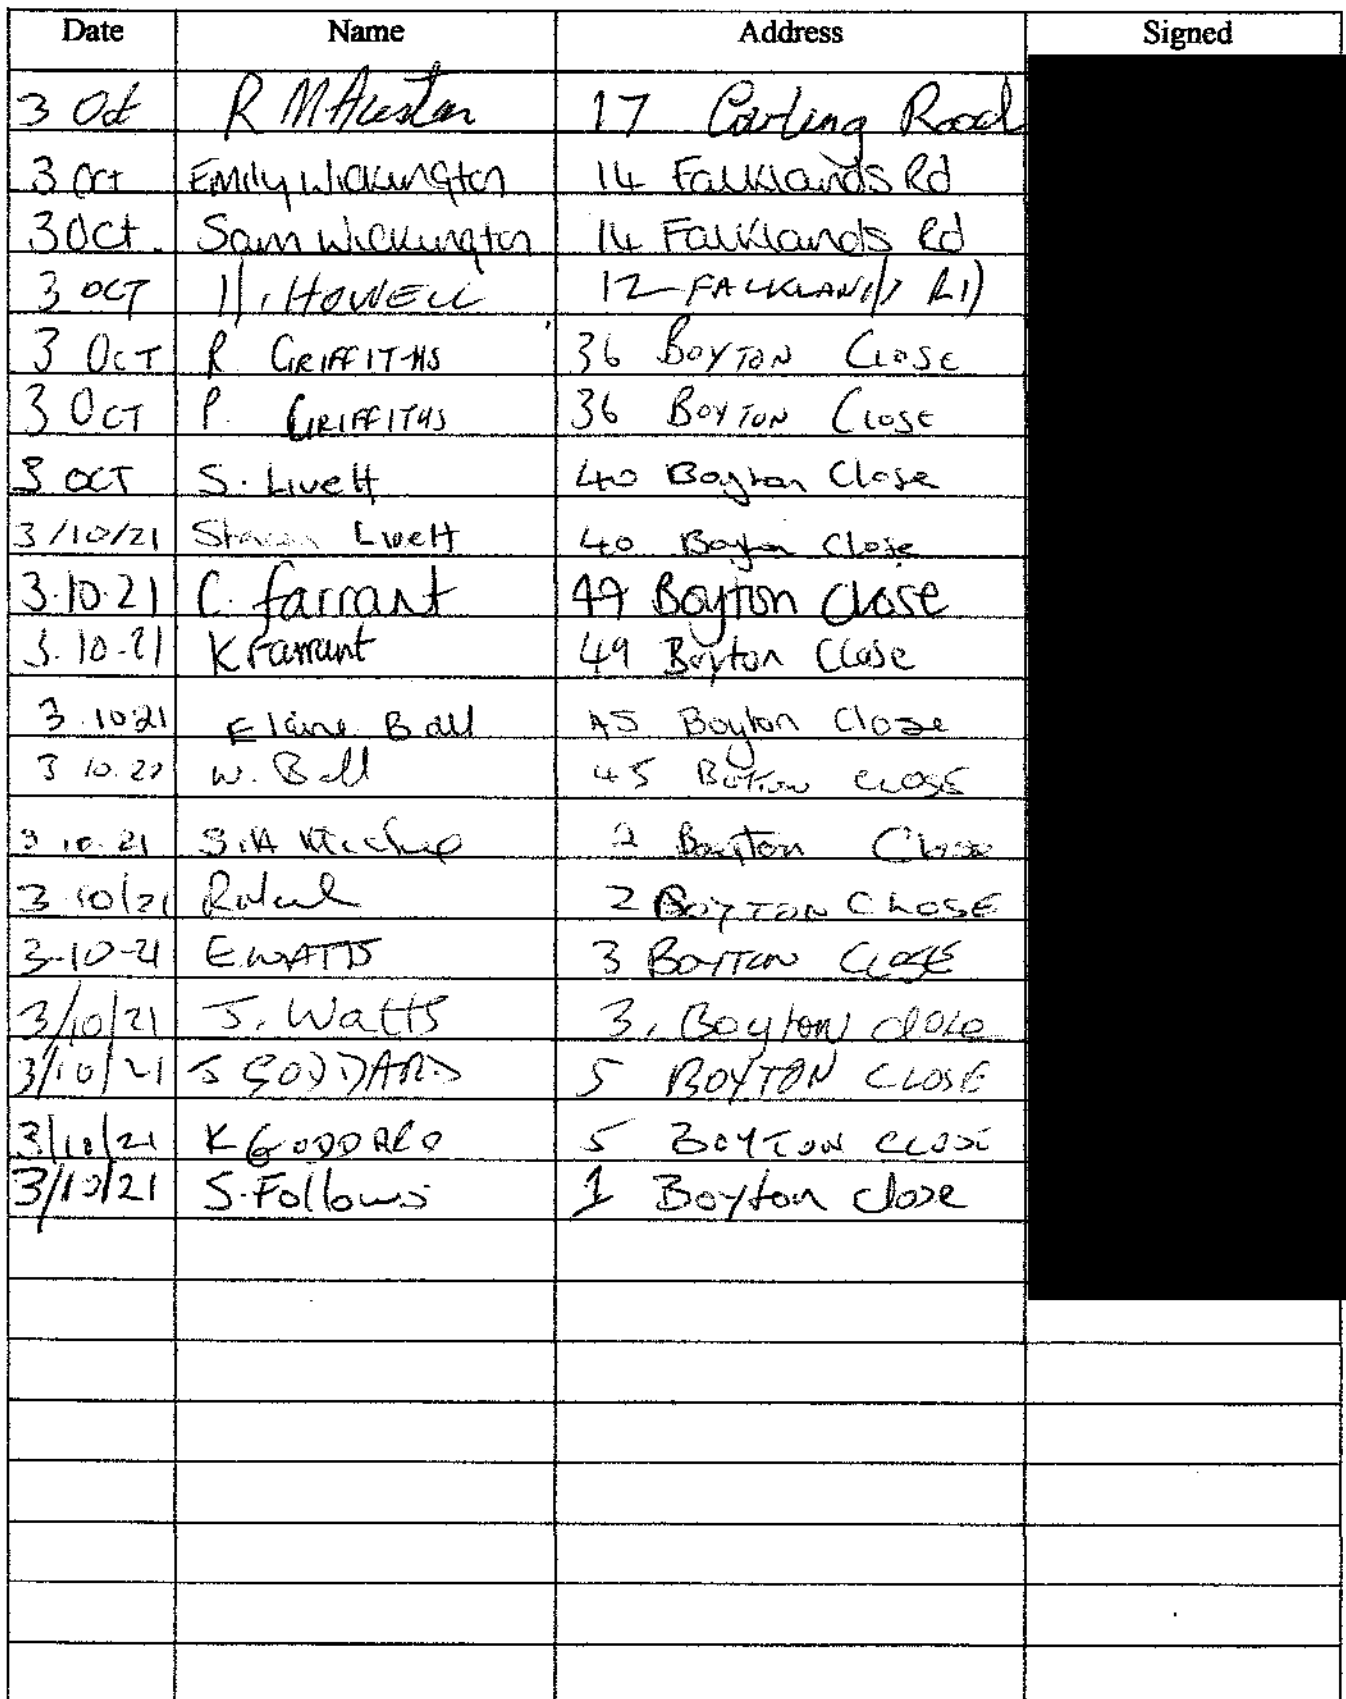 Date Name Address Signed
3 Oct R M Austin 17 Carling Road
3 Oct Emily Wickington 14 Falklands Rd
3 Oct. Sam Wickington 14 Falklands Rd
3 OCT HOWELL 12 FALKLANDS RD
3 OCT R GRIFFITHS 36 BOYTON CLOSE
3 OCT P. GRIFFITHS 36 BOYTON CLOSE
3 OCT S. Livett 40 Boyton Close
3/10/21 Livett 40 Boyton Close
3.10.21 C. farrant 49 Boyton Close
3.10.21 K Farrant 49 Boyton Close
3.10.21 Elaine Ball 45 Boyton Close
3 10. W. Ball 45 BOYTON CLOSE
3.10.21 2 Boyton Close
3.10/21 2 BOYTON CLOSE
3-10-21 E. WATTS 3 BOYTON CLOSE
3/10/21 J. Watts 3, Boyton close
3/10/21 S GODDARD 5 BOYTON CLOSE
3/10/21 K GODDARD 5 BOYTON CLOSE
3/10/21 S. Follows 1 Boyton close